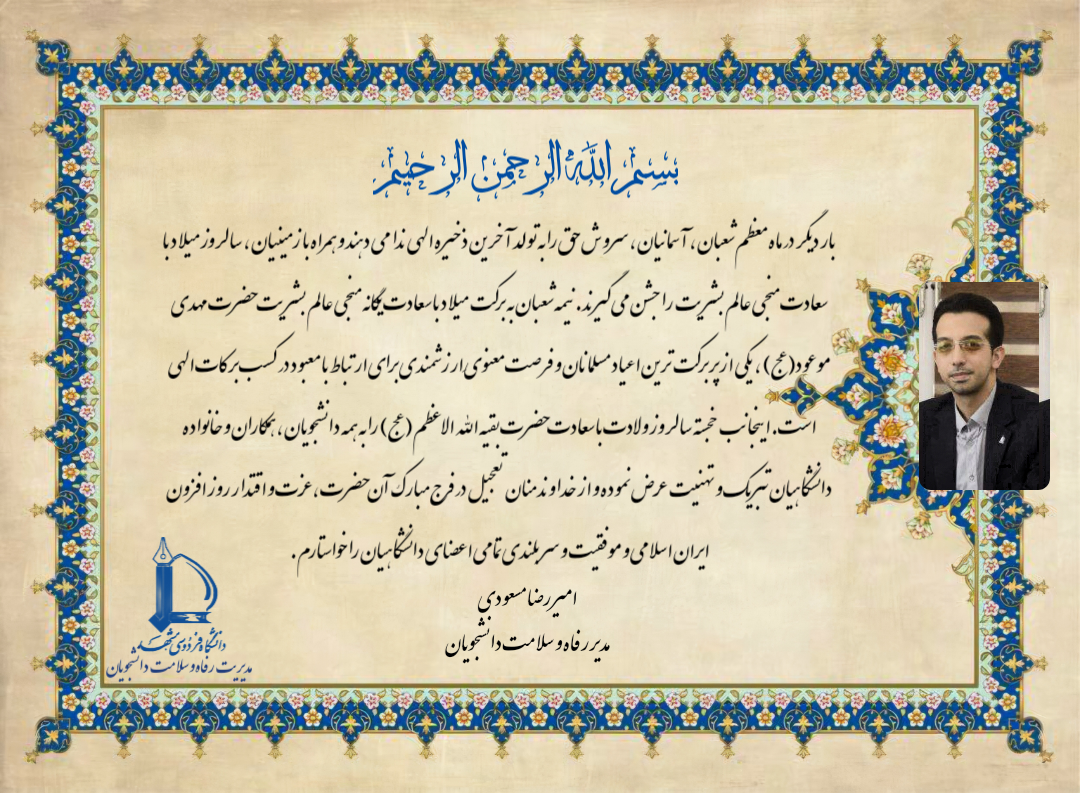 بسم الله الرحمن الرحیم
بار دیگر در ماه معظم شعبان، آسمانیان، سروش حق را به تولد آخرین ذخیره الهی ندا می دهند و همراه با زمینیان، سالروز میلاد با
سعادت منجی عالم بشریت را جشن می گیرند. نیمه شعبان به برکت میلاد باسعادت یگانه منجی عالم بشریت حضرت مهدی
موعود(عج)، یکی از پر برکت ترین اعیاد مسلمانان و فرصت معنوی ارزشمندی برای ارتباط با معبود در کسب برکات الهی
است. اینجانب خجسته سالروز ولادت باسعادت حضرت بقیه الله الاعظم (عج) را به همه دانشجویان، همکاران و خانواده
دانشگاهیان تبریک و تهنیت عرض نموده و از خداوند منان تعجیل در فرج مبارک آن حضرت، عزت و اقتدار روز افزون
ایران اسلامی و موفقیت و سربلندی تمامی اعضای دانشگاهیان را خواستارم.
امیررضا مسعودی
مدیر رفاه و سلامت دانشجویان
دانشگاه فردوسی مشهد
مدیریت رفاه و سلامت دانشجویان